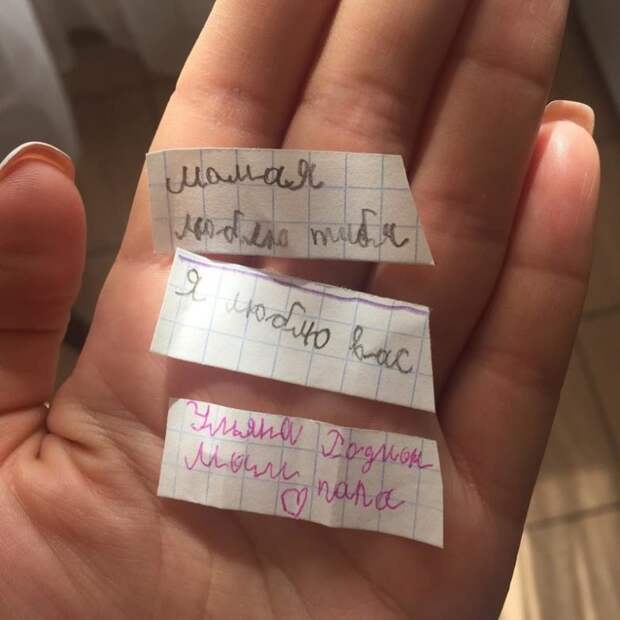 мамая
люблю тибя
Я люблю вас
Ульяна Родион
мама папа